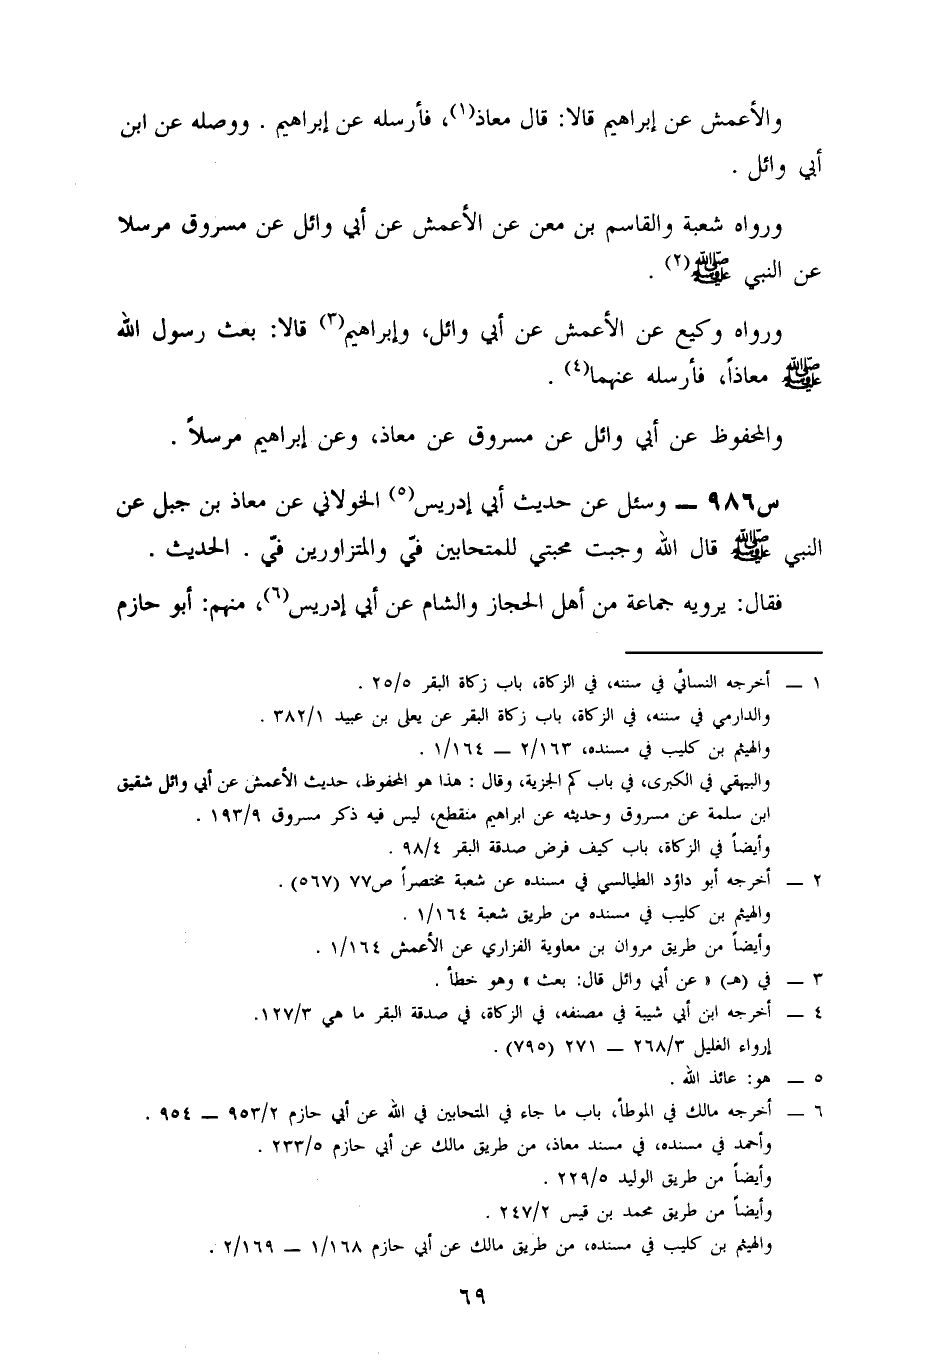 والأعمش عن إبراهيم قالا: قال معاذ(١)، فأرسله عن إبراهيم . ووصله عن ابن
أبي وائل .
ورواه شعبة والقاسم بن معن عن الأعمش عن أبي وائل عن مسروق مرسلا
عن النبي ﷺ(٢) .
ورواه وكيع عن الأعمش عن أبي وائل، وإبراهيم(٣) قالا: بعث رسول الله
ﷺ معاذاً، فأرسله عنهما(٤) .
والمحفوظ عن أبي وائل عن مسروق عن معاذ، وعن إبراهيم مرسلاً .
س٩٨٦ ــ وسئل عن حديث أبي إدريس(٥) الخولاني عن معاذ بن جبل عن
النبي ﷺ قال الله وجبت محبتي للمتحابين فيّ والمتزاورين فيّ . الحديث .
فقال: يرويه جماعة من أهل الحجاز والشام عن أبي إدريس(٦)، منهم: أبو حازم
١ ــ أخرجه النسائي في سننه، في الزكاة، باب زكاة البقر ٢٥/٥ .
والدارمي في سننه، في الزكاة، باب زكاة البقر عن يعلى بن عبيد ٣٨٢/١ .
والهيثم بن كليب في مسنده، ٢/١٦٣ ــ ١/١٦٤ .
والبيهقي في الكبرى، في باب كم الجزية، وقال : هذا هو المحفوظ، حديث الأعمش عن أبي وائل شقيق
ابن سلمة عن مسروق وحديثه عن ابراهيم منقطع، ليس فيه ذكر مسروق ١٩٣/٩ .
وأيضاً في الزكاة، باب كيف فرض صدقة البقر ٩٨/٤ .
٢ ــ أخرجه أبو داؤد الطيالسي في مسنده عن شعبة مختصراً ص٧٧ (٥٦٧) .
والهيثم بن كليب في مسنده من طريق شعبة ١/١٦٤ .
وأيضاً من طريق مروان بن معاوية الفزاري عن الأعمش ١/١٦٤ .
٣ ــ في (هـ) « عن أبي وائل قال: بعث » وهو خطأ .
٤ ــ أخرجه ابن أبي شيبة في مصنفه، في الزكاة، في صدقة البقر ما هي ١٢٧/٣.
إرواء الغليل ٢٦٨/٣ ــ ٢٧١ (٧٩٥) .
٥ ــ هو: عائذ الله .
٦ ــ أخرجه مالك في الموطأ، باب ما جاء في المتحابين في الله عن أبي حازم ٩٥٣/٢ ــ ٩٥٤ .
وأحمد في مسنده، في مسند معاذ، من طريق مالك عن أبي حازم ٢٣٣/٥ .
وأيضاً من طريق الوليد ٢٢٩/٥ .
وأيضاً من طريق محمد بن قيس ٢٤٧/٢ .
والهيثم بن كليب في مسنده، من طريق مالك عن أبي حازم ١/١٦٨ ــ ٢/١٦٩ .
٦٩